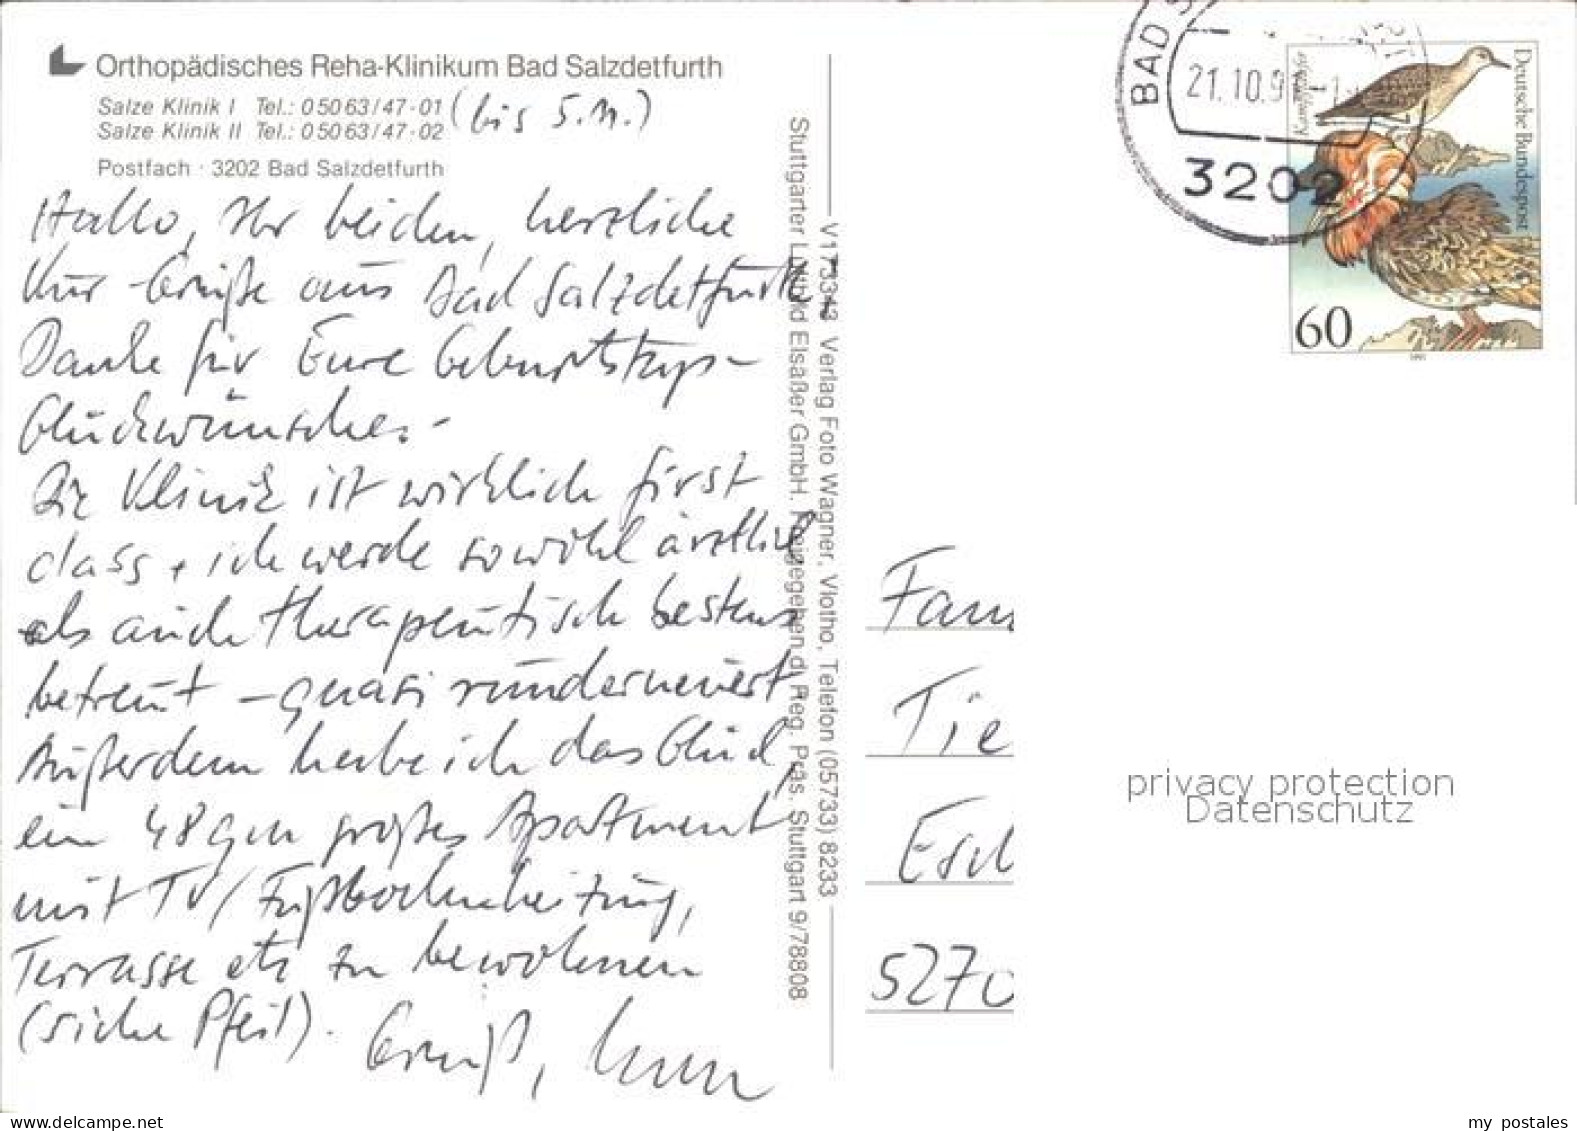 Orthopädisches Reha-Klinikum Bad Salzdetfurth
Salze Klinik I Tel.: 0 50 63/47-01
Salze Klinik II Tel.: 0 50 63/47-02
(bis 5.11.)
Postfach · 3202 Bad Salzdetfurth
Hallo, Ihr beiden, herzliche
Kur-Grüße aus Bad Salzdetfurth.
Danke für Eure Geburtstags-
Glückwünsche. -
Die Klinik ist wirklich first
class + ich werde sowohl ärztlich
als auch therapeutisch bestens
betreut – quasi runderneuert.
Außerdem habe ich das Glück,
ein 48 qm großes Apartment
mit TV / Fußbodenheitung,
Terrasse etc zu bewohnen
(siehe Pfeil).
Gruß,
V 173343 Verlag Foto Wagner, Vlotho, Telefon (05733) 8233
Stuttgarter Luftbild Elsäßer GmbH. Freigegeben d. Reg. Präs. Stuttgart 9/78808
BAD S
21.10.9
3202
Kampfläufer
Deutsche Bundespost
60
1991
Fam
Tie
Esch
5270
privacy protection
Datenschutz
my postales
www.delcampe.net